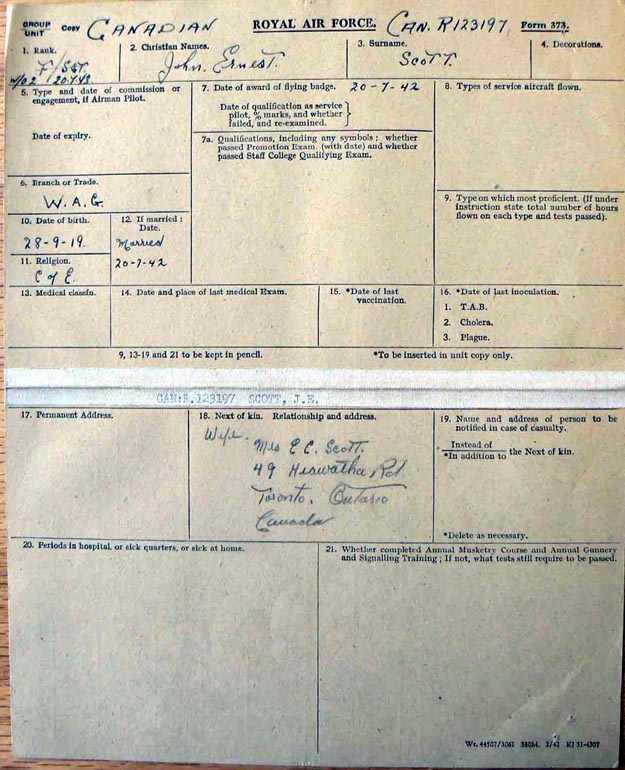 GROUP UNIT Copy CANADIAN ROYAL AIR FORCE. CAN. R123197 Form 373.
1. Rank. F/SGT.
W/O2 20-7-43
2. Christian Names. John. Ernest.
3. Surname. Scott.
4. Decorations.
5. Type and date of commission or
engagement, if Airman Pilot.
Date of expiry.
7. Date of award of flying badge. 20-7-42
Date of qualification as service
pilot, % marks, and whether
failed, and re-examined.
7a. Qualifications, including any symbols; whether
passed Promotion Exam. (with date) and whether
passed Staff College Qualifying Exam.
8. Types of service aircraft flown.
6. Branch or Trade.
W.A.G.
9. Type on which most proficient. (If under
instruction state total number of hours
flown on each type and tests passed).
10. Date of birth.
28-9-19.
12. If married:
Date.
Married
20-7-42
11. Religion.
C of E.
13. Medical classfn.
14. Date and place of last medical Exam.
15. *Date of last
vaccination.
16. *Date of last inoculation.
1. T.A.B.
2. Cholera.
3. Plague.
9, 13-19 and 21 to be kept in pencil.
*To be inserted in unit copy only.
CAN:R.123197 SCOTT, J.E.
17. Permanent Address.
18. Next of kin. Relationship and address.
Wife.
Mrs E C. Scott.
49 Hiawatha Rd.
Toronto. Ontario
Canada
19. Name and address of person to be
notified in case of casualty.
Instead of
*In addition to the Next of kin.
*Delete as necessary.
20. Periods in hospital, or sick quarters, or sick at home.
21. Whether completed Annual Musketry Course and Annual Gunnery
and Signalling Training; If not, what tests still require to be passed.
Wt. 44507/3061 380M. 2/42 KJ 51-4307